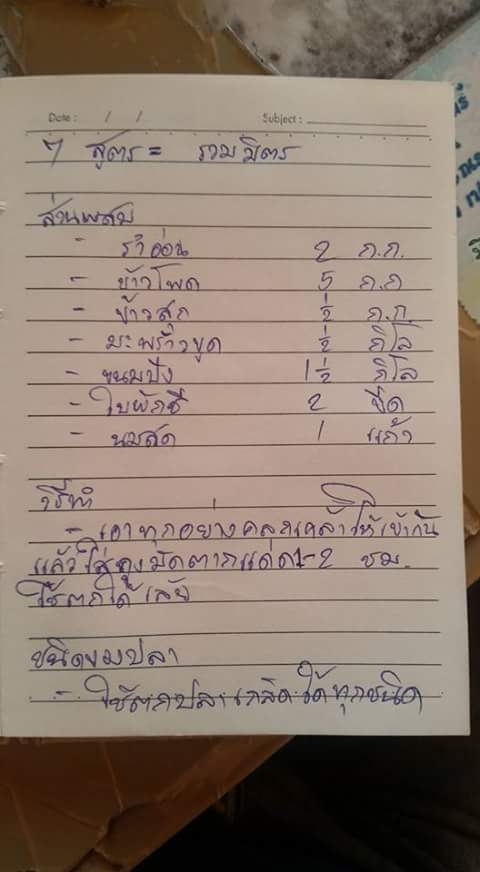 Date : / / Subject :
7 สูตร = รวมมิตร
ส่วนผสม
- รำอ่อน 2 ก.ก.
- ข้าวโพด 5 ก.ก
- ข้าวสุก ½ ก.ก.
- มะพร้าวขูด ½ กิโล
- ขนมปัง 1½ กิโล
- ใบผักชี 2 ขีด
- นมสด 1 แก้ว
วิธีทำ
- เอาทุกอย่างคลุกเคล้าให้เข้ากัน
แล้วใส่ถุงมัดตากแดด 1-2 ชม.
ใช้ตกได้เลย
ชนิดของปลา
- ใช้ตกปลาเกล็ดได้ทุกชนิด